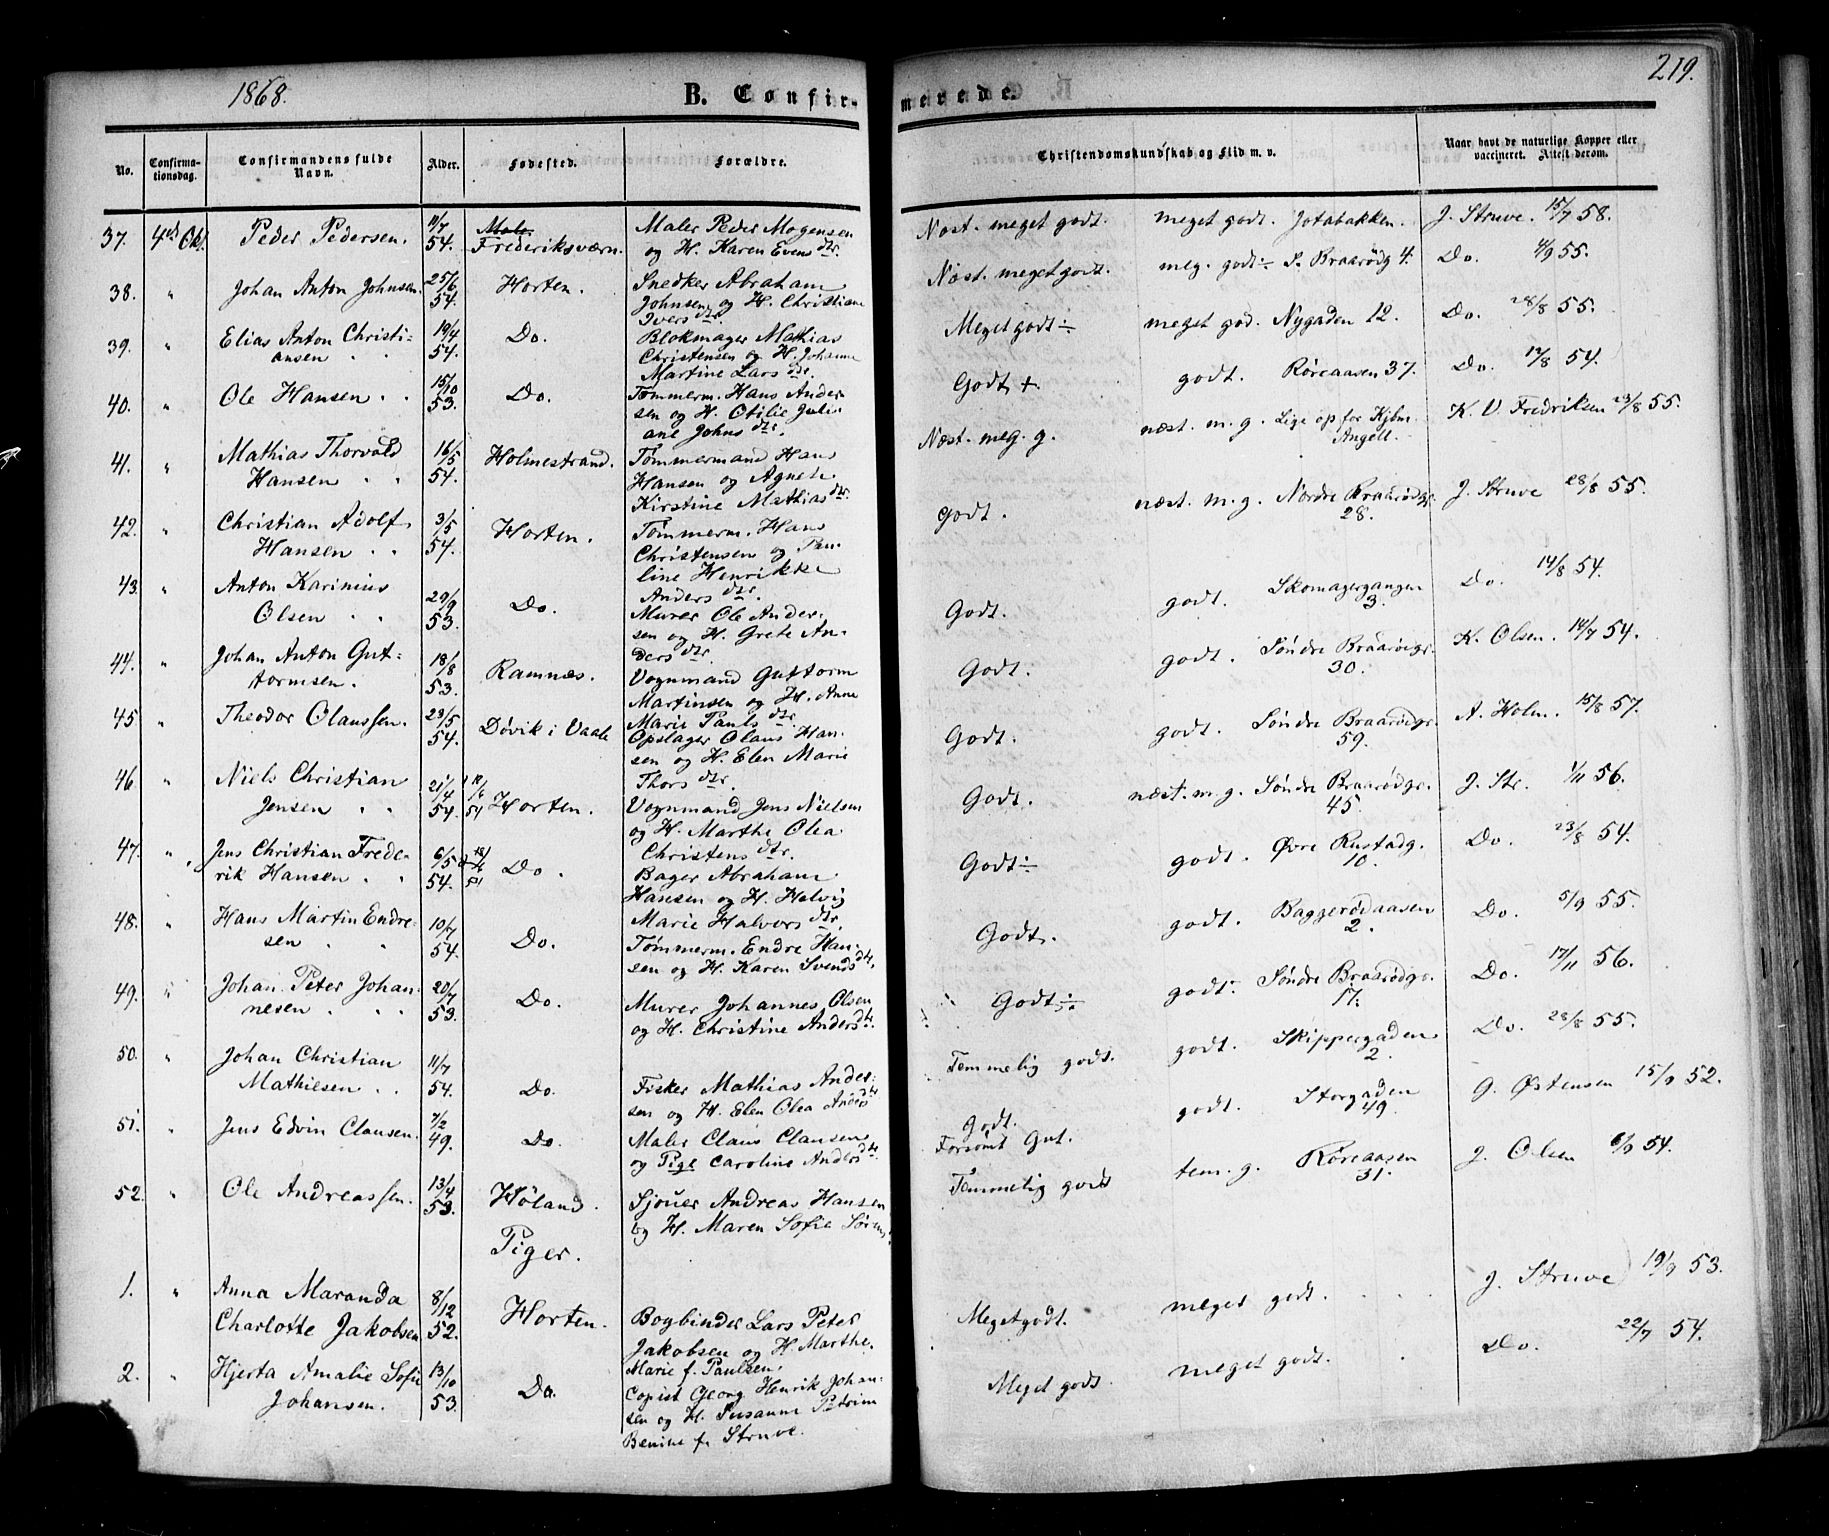 1868.
B. Confir-
merede.
219.
No.
Confirma-
tionsdag.
Confirmandens fulde
Navn.
Alder.
Fødested.
Forældre.
Christendomskundskab og Flid m. v.
Naar havt de naturlige Kopper eller
vaccineret. Attest derom.
37. 4de Okt. Peder Pedersen. 11/7 54. Frederiksværn. Maler Peder Mogensen
og H. Karen Evensdtr.
Næst. meget godt. meget godt. Jotabakken. J. Struve. 15/7 58.
38. " Johan Anton Johnsen. 25/6 54. Horten. Snedker Abraham
Johnsen og H. Christiane
Iversdtr.
Næst. meget godt. meg. godt÷ S. Braarødg 4. Do. 4/9 55.
39. " Elias Anton Christi-
ansen 19/4 54. Do. Blokmager Mathias
Christensen og H. Johanne
Martine Larsdtr.
Meget godt÷ meget god. Nygaden 12. Do. 28/8 55.
40. " Ole Hansen 15/10 53. Do. Tømmerm. Hans Ander-
sen og H. Otilie Juli-
ane Johnsdtr.
Godt + godt. Røreaasen 37. Do. 17/8 54.
41. " Mathias Thorvald
Hansen 16/5 54. Holmestrand. Tømmermand Hans
Hansen og Agneth
Kirstine Mathiasdtr.
Næst. meg. g. næst. m. g. Lige op for Kjbm.
Angell. K. V. Fredriksen 23/8 55.
42. " Christian Adolf
Hansen 3/5 54. Horten. Tømmerm. Hans
Christensen og Pau-
line Henrikke
Andersdtr.
Godt. næst. m. g. Nordre Braarødgr.
28. J. Struve 28/8 55.
43. " Anton Karinius
Olsen 29/9 53. Do. Murer Ole Ander-
sen og H. Grete An-
dersdtr.
Godt. godt. Skomagergangen
3. Do. 14/8 54.
44. " Johan Anton Gut-
tormsen. 18/8 53. Ramnæs. Vognmand Guttorm
Martinsen og H. Anne
Marie Paulsdtr.
Godt. godt. Søndre Braarødgr.
30. K. Olsen. 14/7 54.
45. " Theodor Olaussen. 23/5 54. Døvik i Vaale Opslager Olaus Han-
sen og H. Elen Marie
Thorsdtr.
Godt. godt. Søndre Braarødgr.
59. A. Holm. 15/8 57.
46. " Niels Christian
Jensen 21/4 54. Horten. Vognmand Jens Nielsen
og H. Marthe Olea
Christensdtr.
Godt. næst. m. g. Søndre Braarødgr.
45. J. Str. 1/11 56.
47. " Jens Christian Frede-
rik Hansen 6/5 54. Do. Bager Abraham
Hansen og H. Helvig
Marie Halvorsdtr.
Godt÷ godt. Øvre Rustadg.
10. Do. 23/8 54.
48. " Hans Martin Endre-
sen 10/7 54. Do. Tømmerm. Endre Han-
sen og H. Karen Svendsdtr.
Godt. godt. Baggerødaasen
2. Do. 5/9 55.
49. " Johan Peter Johan-
nesen 20/7 53. Do. Murer Johannes Olsen
og H. Christine Andersdtr.
Godt÷ godt. Søndre Braarødgr.
17. Do. 17/11 56.
50. " Johan Christian
Mathiesen 11/7 54. Do. Fisker Mathias Ander-
sen og H. Elen Olea Andersdtr.
Temmelig godt. godt. Skippergaden
2. Do. 28/8 55.
51. " Jens Edvin Clausen. 7/2 49. Do. Maler Claus Clausen
og Pige Caroline Andersdtr.
Godt.
Forsømt Gut. godt. Storgaden
49. G. Østensen 15/9 52.
52. " Ole Andreassen. 13/4 53. Høland. Sjouer Andreas Hansen
og H. Maren Sofie Sørens.
Temmelig godt tem. g. Røreaasen
31. J. Olsen 6/9 54.
Piger.
1. " Anna Maranda
Charlotte Jakobsen 8/12 52. Horten. Bogbinder Lars Peter
Jakobsen og H. Marthe
Marie f. Paulsen.
Meget godt. meget godt. J. Struve 19/9 53.
2. " Hjerta Amalie Sofie
Johansen. 13/10 53. Do. Copist Georg Henrik Johan-
sen og H. Susanne Petrine
f. Struve.
Meget godt. meget godt. Do. 22/7 54.